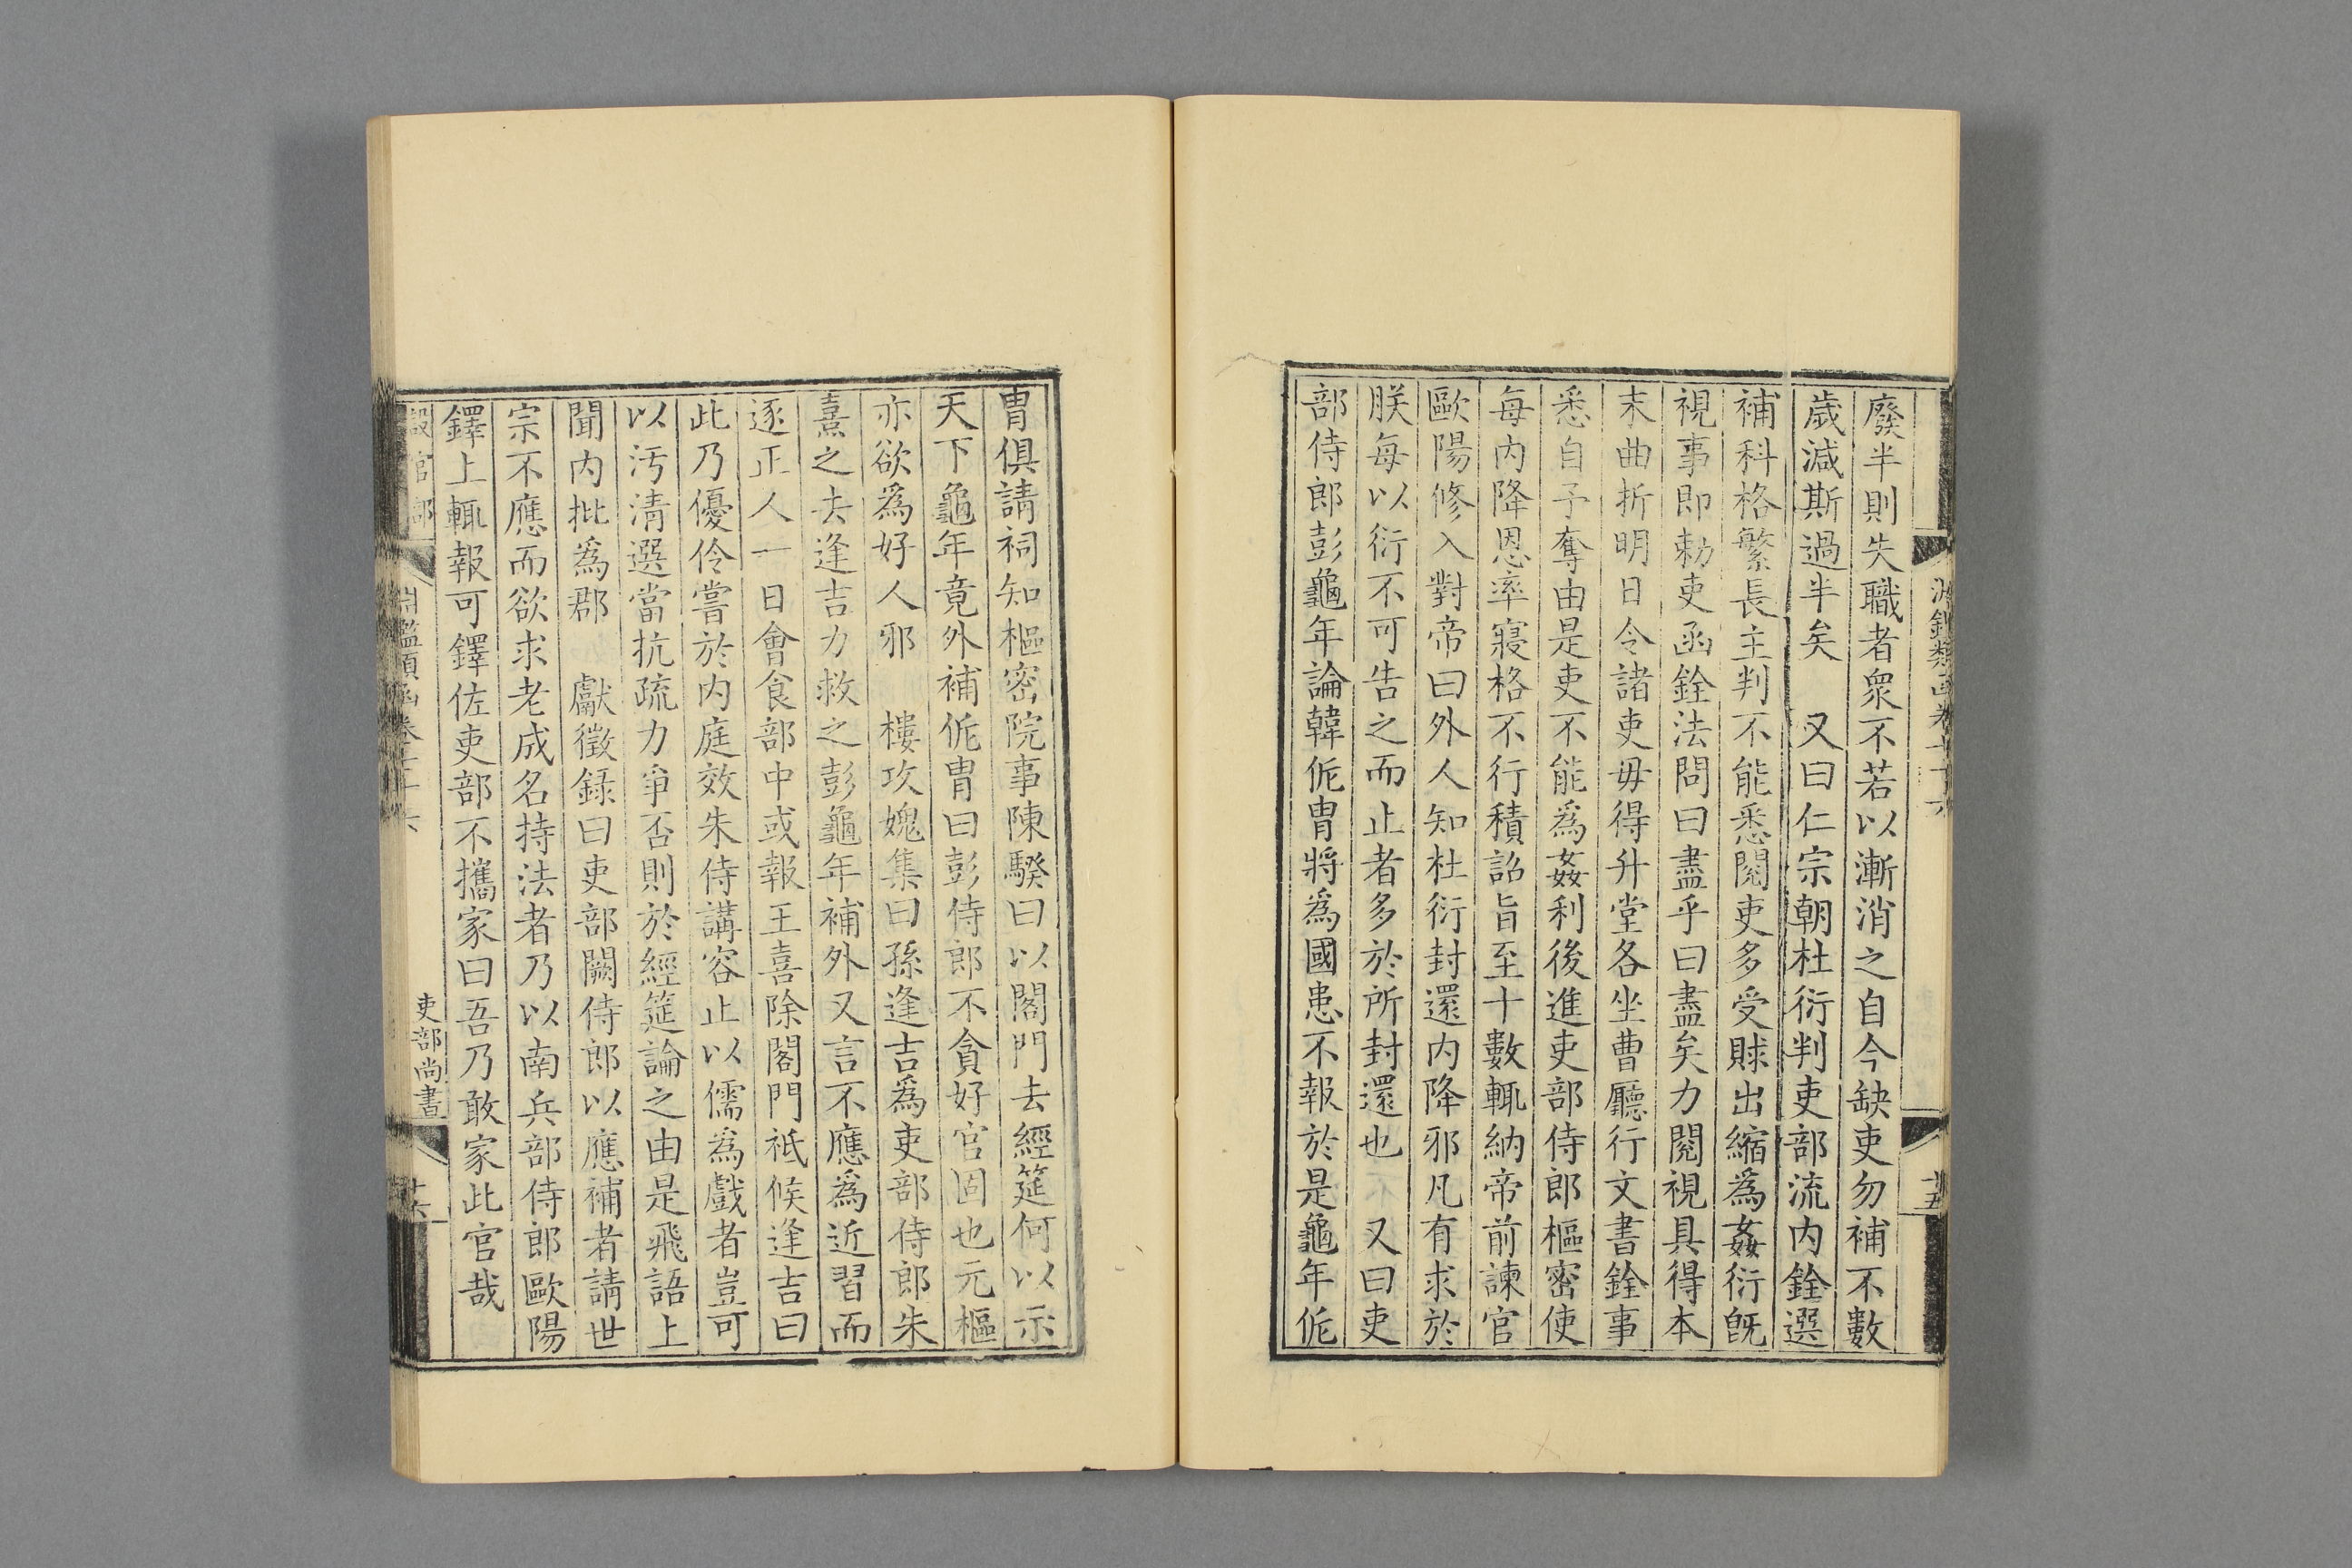 廢半則失職者衆不若以漸消之自今缺吏勿補不數
歲減斯過半矣　又曰仁宗朝杜衍判吏部流内銓選
補科格繁長主判不能悉閱吏多受賕出縮爲姦衍旣
視事即勅吏函銓法問曰盡乎曰盡矣力閱視具得本
末曲折明日令諸吏毋得升堂各坐曹廳行文書銓事
悉自予奪由是吏不能爲姦利後進吏部侍郎樞密使
每内降恩率寢格不行積詔旨至十數輒納帝前諫官
歐陽修入對帝曰外人知杜衍封還内降邪凡有求於
朕每以衍不可告之而止者多於所封還也　又曰吏
部侍郎彭龜年論韓侂胄將爲國患不報於是龜年侂
胄俱請祠知樞密院事陳騤曰以閣門去經筵何以示
天下龜年竟外補侂胄曰彭侍郎不貪好官固也元樞
亦欲爲好人邪　樓攻媿集曰孫逢吉爲吏部侍郎朱
熹之去逢吉力救之彭龜年補外又言不應爲近習而
逐正人一日會食部中或報王喜除閣門祗候逢吉曰
此乃優伶嘗於内庭效朱侍講容止以儒爲戲者豈可
以汚清選當抗疏力爭否則於經筵論之由是飛語上
聞内批爲郡　獻徵録曰吏部闕侍郎以應補者請世
宗不應而欲求老成名持法者乃以南兵部侍郎歐陽
鐸上輒報可鐸佐吏部不攜家曰吾乃敢家此官哉
設官部
淵鑑類函卷
吏部尚書